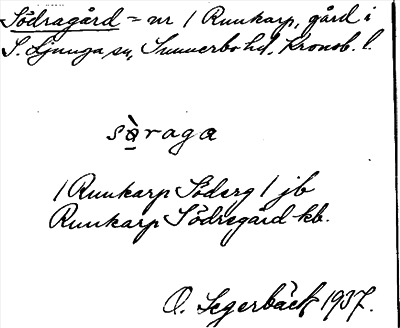 Södragård = nr 1 Runkarp, gård i
S. Ljunga sn, Sunnerbo hd, Kronob. l.
sə̀raga
1 Runkarp Söderg 1 jb
Runkarp Södregård kb.
O. Segerbäck 1937.